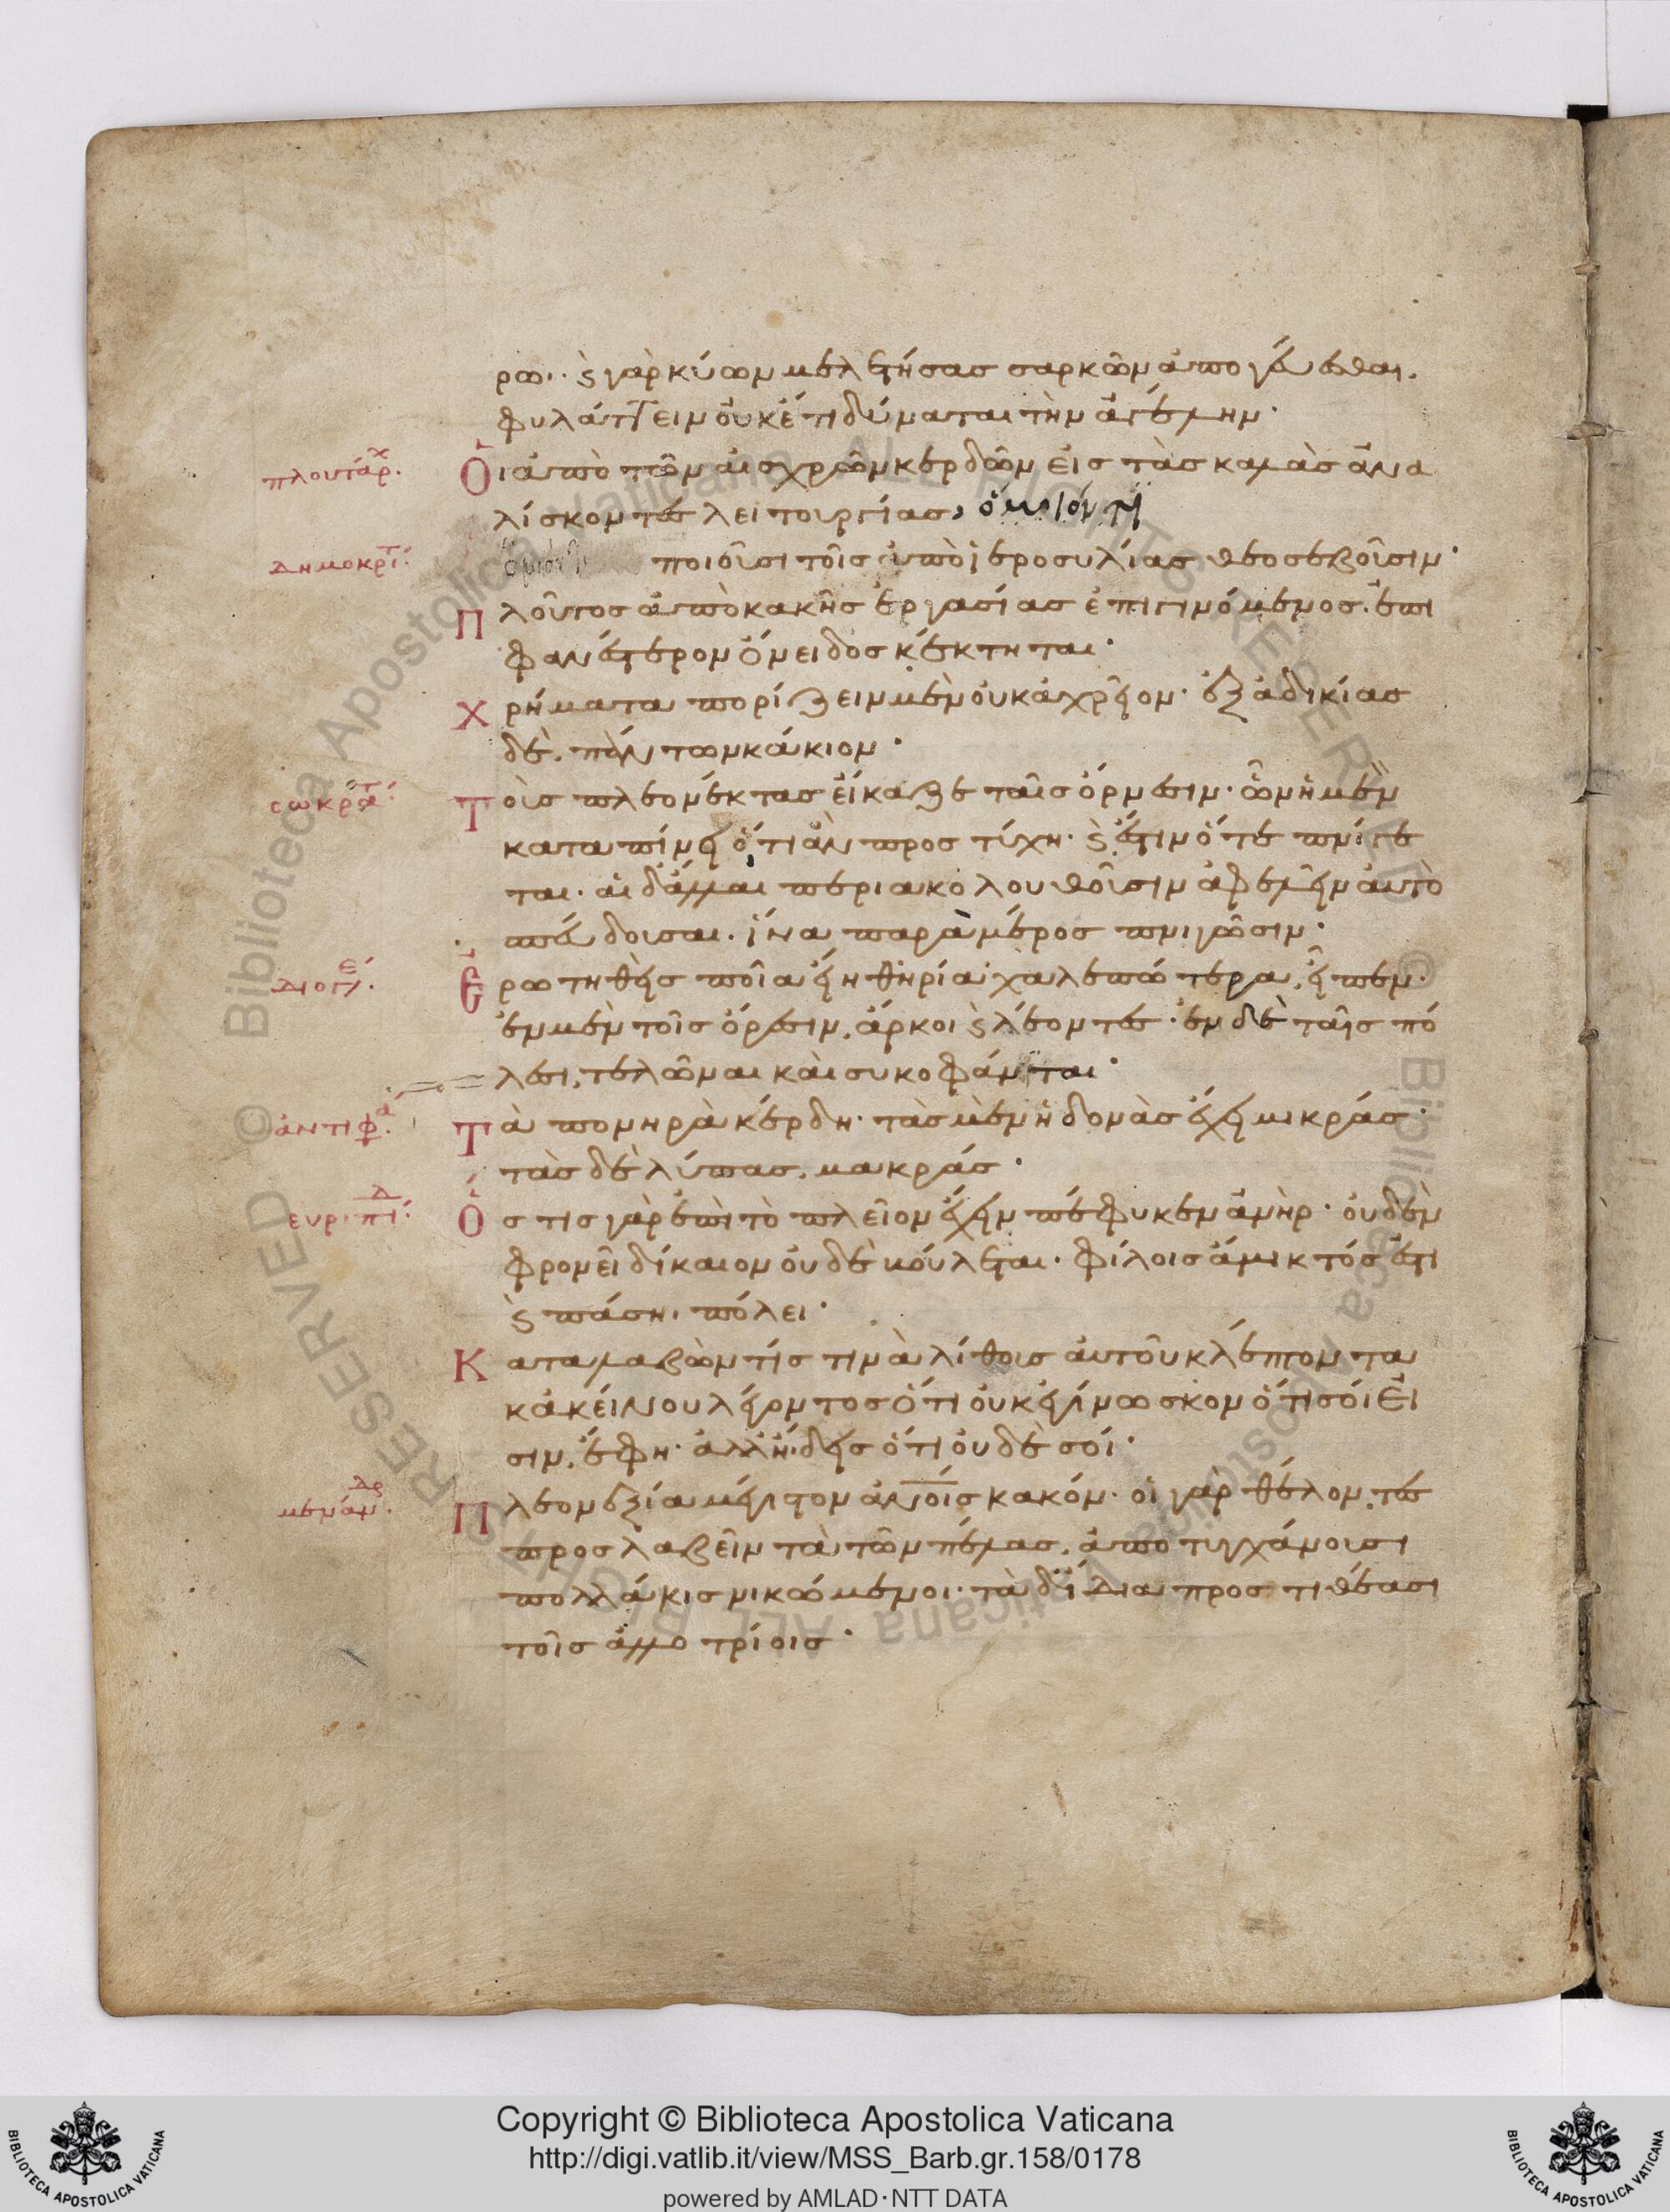 ρω· ϛ γὰρ κύων μελετήσας σαρκῶν ἀπογεύεσθαι.
φυλάττειν οὐκέτι δύναται τὴν ἀγέλην·
πλουτάρχ. Οἱ ἀπὸ τῶν αἰσχρῶν κερδῶν εἰς τὰς καλὰς ἀνα
λίσκοντες λειτουργίας, ὅμοιόν τι
δημοκρίτ: ποιοῦσι τοῖς ἀπὸ ἱεροσυλίας θεοσεβοῦσιν·
Πλοῦτος ἀπὸ κακῆς ἐργασίας ἐπιγινόμενος. ἐπι
φανέστερον ὄνειδος κέκτηται·
Χρήματα πορίζειν μὲν οὐκ ἀχρεῖον· ἐξ ἀδικίας
δὲ. πάντων κάκιον·
σωκράτ: Τοὺς πλεονέκτας εἴκαζε ταῖς ὄρνεσιν· ὧν ἡ μὲν
καταπίνει ὅτι ἂν προστύχη· ϛ ἔστιν ὅτε πνίγε
ται. αἱ δ' ἄλλαι περιακολουθοῦσιν ἀφελεῖν αὐτὸ
σπεύδουσαι. ἵνα παρὰ μέρος πνιγῶσιν·
διογέ. Ἐρωτηθεὶς ποῖα εἴη θηρία χαλεπώτερα, εἶπεν·
ἐν μὲν τοῖς ὄρεσιν, ἄρκοι ϛ λέοντες· ἐν δὲ ταῖς πό
λεσι, τελῶναι καὶ συκοφάνται·
ἀντιφά. Τὰ πονηρὰ κέρδη· τὰς μὲν ἡδονὰς ἔχει μικράς·
τὰς δὲ λύπας, μακράς·
ευριπίδ: Ὅστις γὰρ ἐπὶ τὸ πλεῖον ἔχειν πέφυκεν ἀνὴρ· οὐδὲν
φρονεῖ δίκαιον οὐδὲ βούλεται· φίλοις ἄμικτός ἐστι
ϛ πάσηι πόλει·
Καταλαβών τίς τινὰ λίθοις αὐτοῦ κλέπτοντα
κἀκείνου λέγοντος ὅτι οὐκ ἐγίνωσκον ὅτι σοί εἰ
σιν, ἔφη· ἀλλ' ἤιδεις ὅτι οὐδὲ σοί·
μενάνδρ. Πλεονεξία μέγιστον ἀνοῖς κακόν· οἱ γὰρ θέλοντες
προσλαβεῖν τὰ τῶν πέλας, ἀποτυγχάνουσι
πολλάκις νικώμενοι· τὰ δ' ἴδια προστιθέασι
τοῖς ἀλλοτρίοις·
Copyright © Biblioteca Apostolica Vaticana
http://digi.vatlib.it/view/MSS_Barb.gr.158/0178
powered by AMLAD·NTT DATA